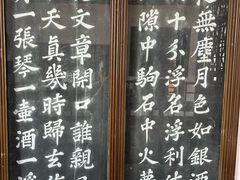 無塵月色如銀酒
十分浮名浮利
隙中駒石中火夢
文章開口誰親
天真幾時歸去
一張琴一壺酒一